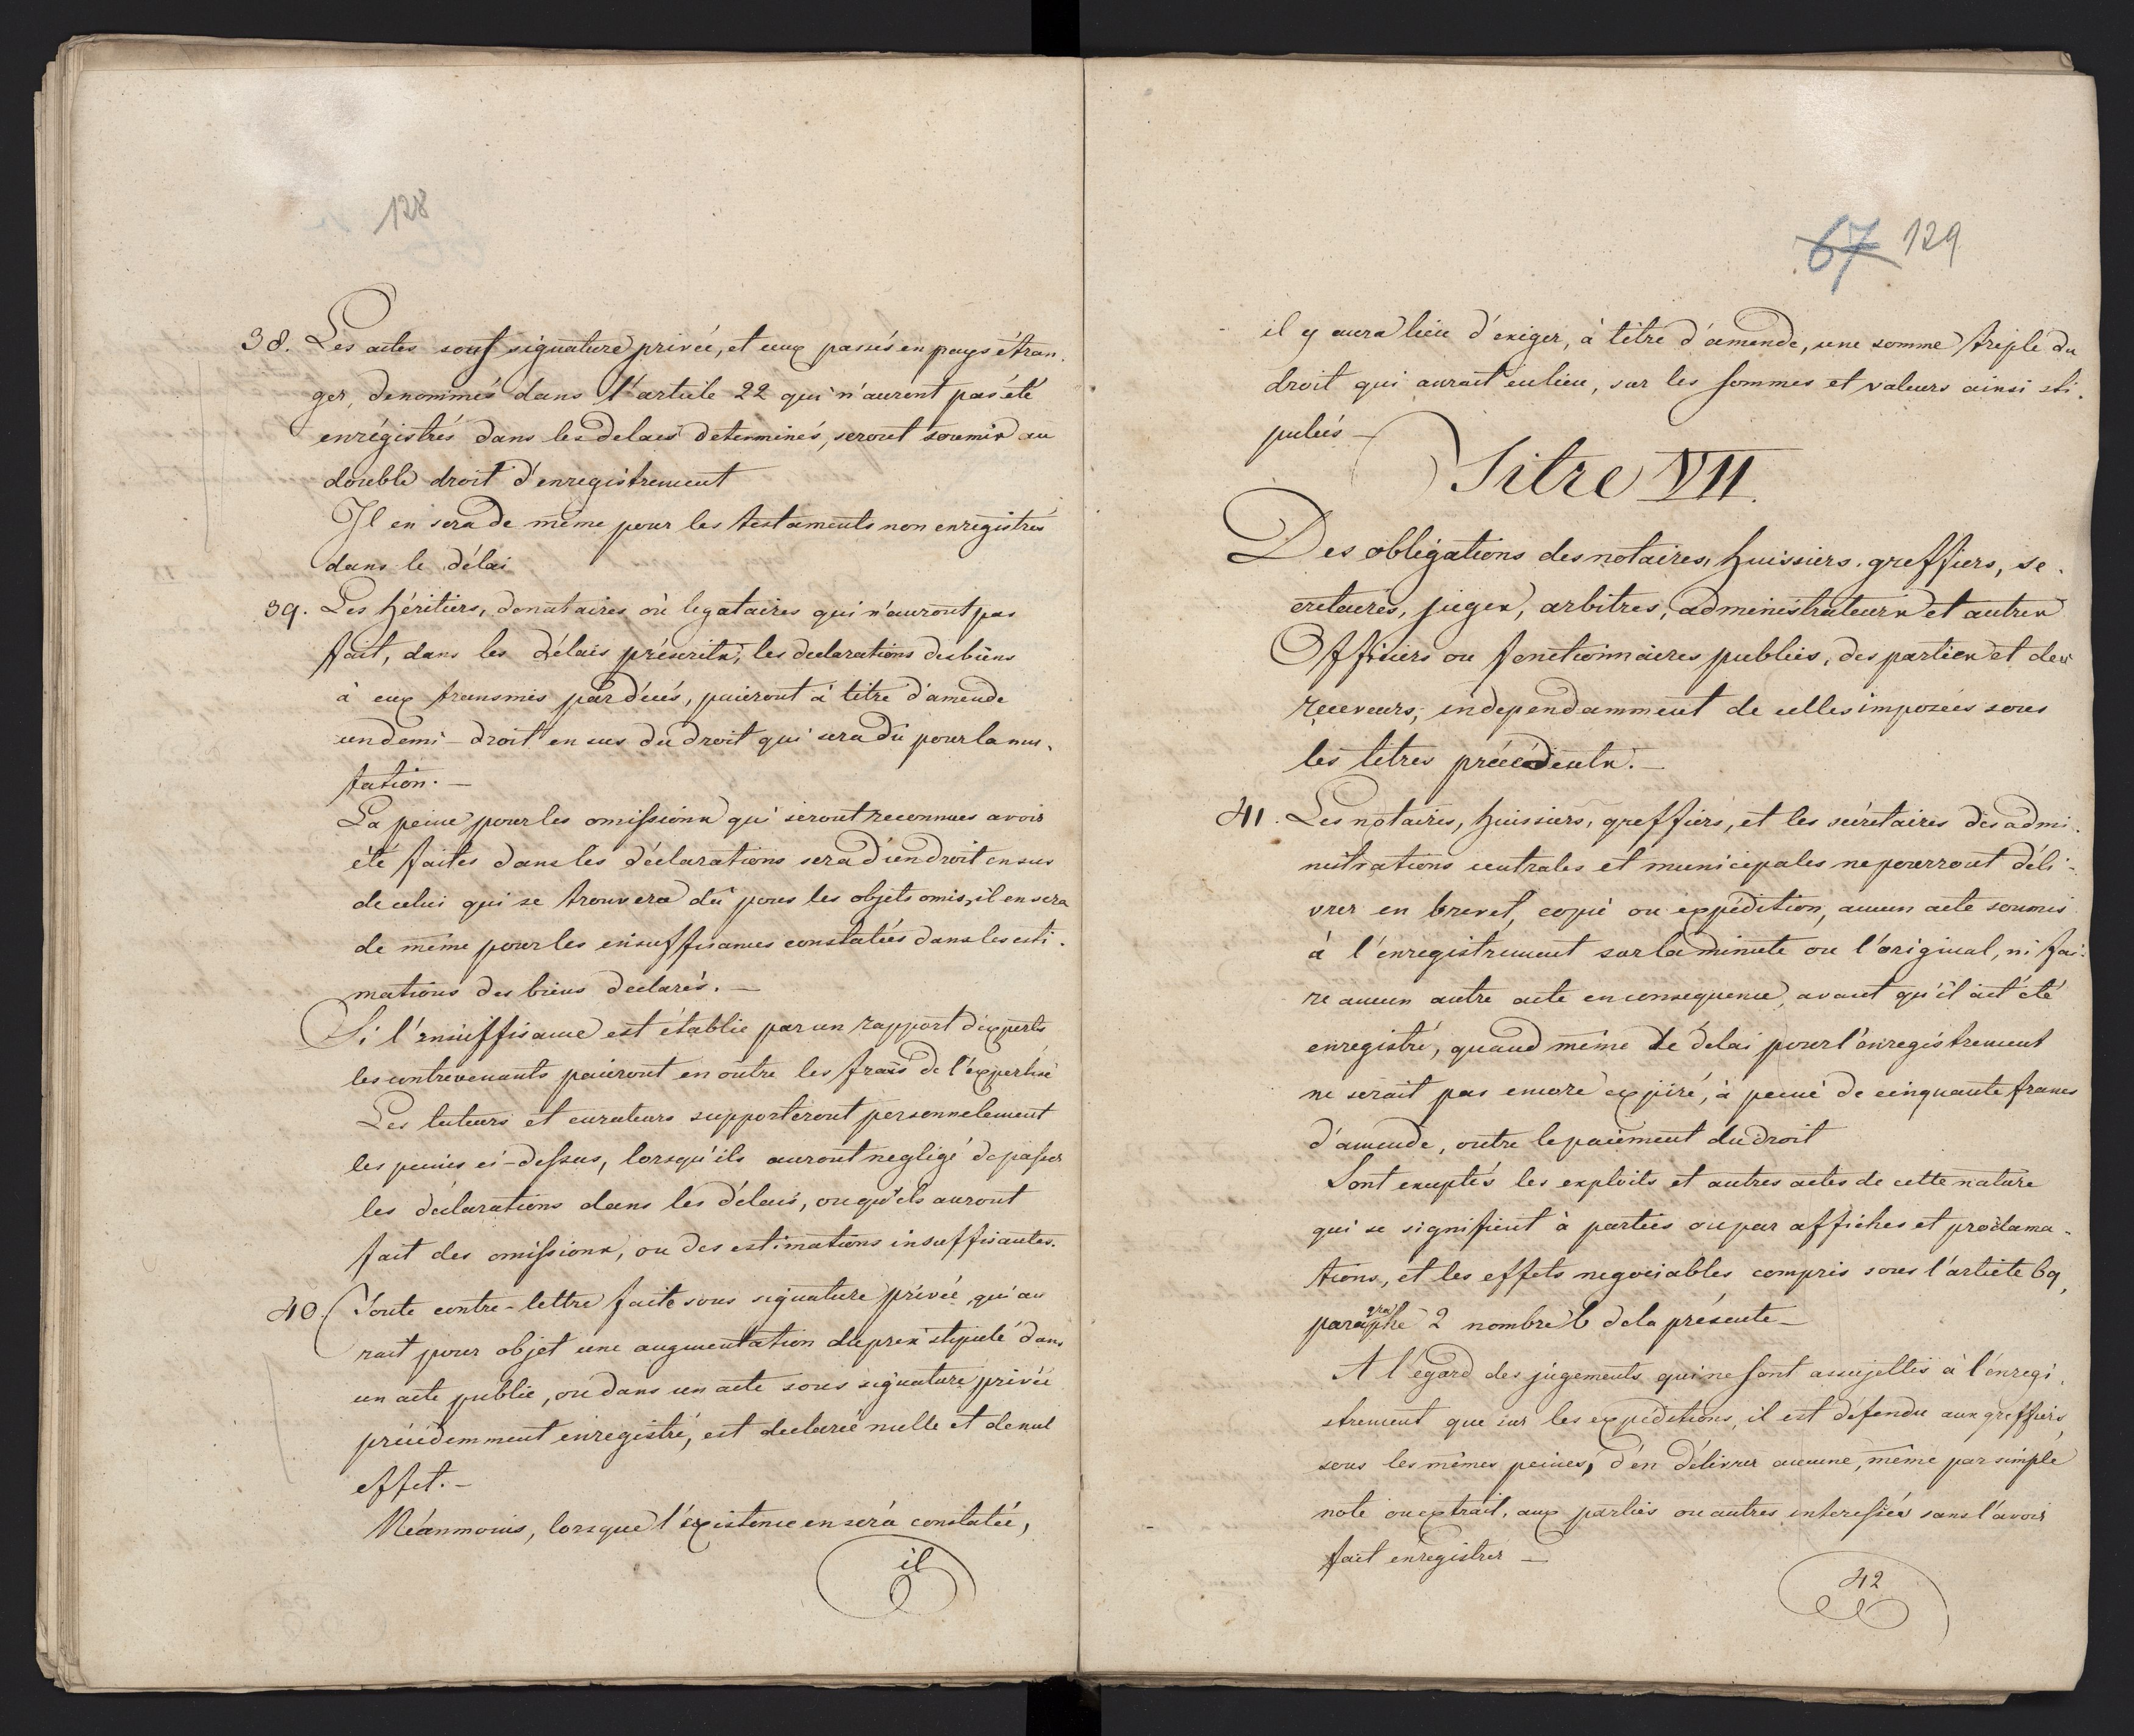 128
38. Les actes sous signature privée, et ceux passés en pays étran-
ger, denommés dans l'article 22 qui n'auront pas été
enrégistrés dans les delais determinés, seront soumis au
double droit d'enregistrement
Il en sera de même pour les testaments non enregistrés
dans le délai
39. Les héritiers, donataires où legataires qui n'auront pas
fait, dans les délais préscrits, les declarations des biens
à eux transmis par décés, paieront à titre d'amende
un demi-droit en sus du droit qui sera dû pour la mu-
tation. —
La peine pour les omissions qui seront reconnues avoir
été faites dans les déclarations sera d'un droit en sus
de celui qui se trouvera dû pour les objets omis, il en sera
de même pour les insuffisances constatées dans les esti-
mations des biens declarés. —
Si l'insuffisance est établie par un rapport d'experts
les contrevenants paieront en outre les frais de l'expertise
Les tuteurs et curateurs supporteront personnelement
les peines ci-dessus, lorsqu'ils auront negligé de passer
les déclarations dans les délais, ou qu'ils auront
fait des omissions, ou des estimations insuffisantes.
40. Toute contre-lettre faite sous signature privée, qui au
rait pour objet une augmentation du prix stipulé dans
un acte public, ou dans un acte sous signature privée
précédemment enregistré, est declarée nulle et de nul
effet. —
Néanmoins, lorsque l'éxistence en sera constatée,
il
67 129
il y aura lieu d'exiger, à titre d'amende, une somme triple du
droit qui aurait eu lieu, sur les sommes et valeurs ainsi sti-
pulées —
Titre VII.
Des obligations des notaires, huissiers, greffiers, se-
cretaires, juges, arbitres, administrateurs et autres
Officiers ou fonctionnaires publics, des parties et des
receveurs, independamment de celles imposées sous
les titres précédents. —
41. Les notaires, huissiers, greffiers, et les secrétaires des admi-
nistrations centrales et municipales ne pourront déli-
vrer en brevet, copie ou expédition, aucun acte soumis
à l'enregistrement sur la minute ou l'original, ni fai-
re aucun autre acte en consequence, avant qu'il ait été
enregistré, quand même le délai pour l'enregistrement
ne serait pas encore expiré, à peine de cinquante francs
d'amende, outre le paiement du droit
Sont exceptés les exploits et autres actes de cette nature
qui se signifient à parties ou par affiches et proclama-
tions, et les effets negociables compris sous l'article 69,
paragraphe 2 nombre 6 de la présente —
A l'égard des jugements qui ne sont assujettis à l'enregi-
strement que sur les expéditions, il est défendu aux greffiers,
sous les mêmes peines, d'en délivrer aucune, même par simple
note ou extrait, aux parties ou autres interessées sans l'avoir
fait enregistrer —
42